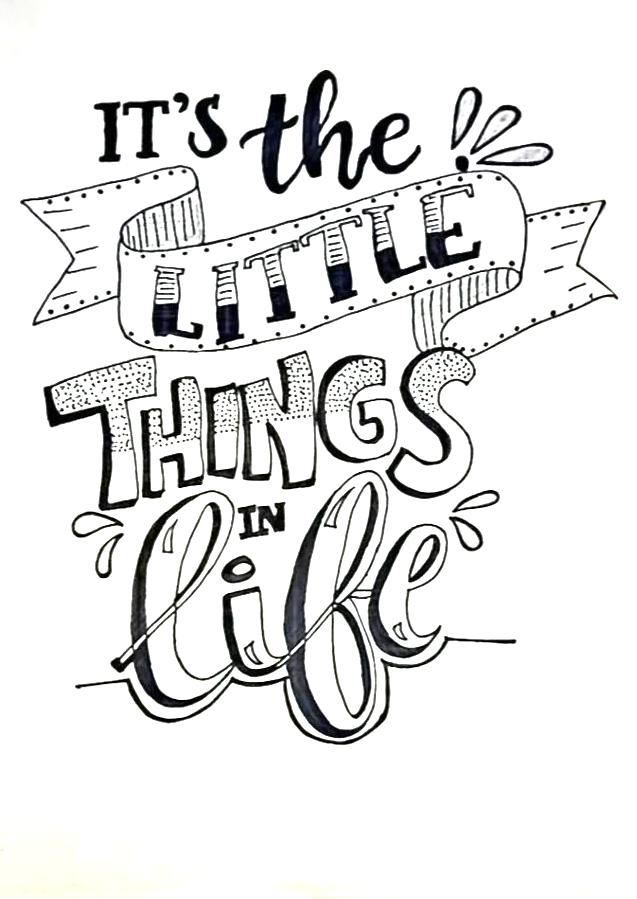 IT'S the
LITTLE
THINGS
IN
life